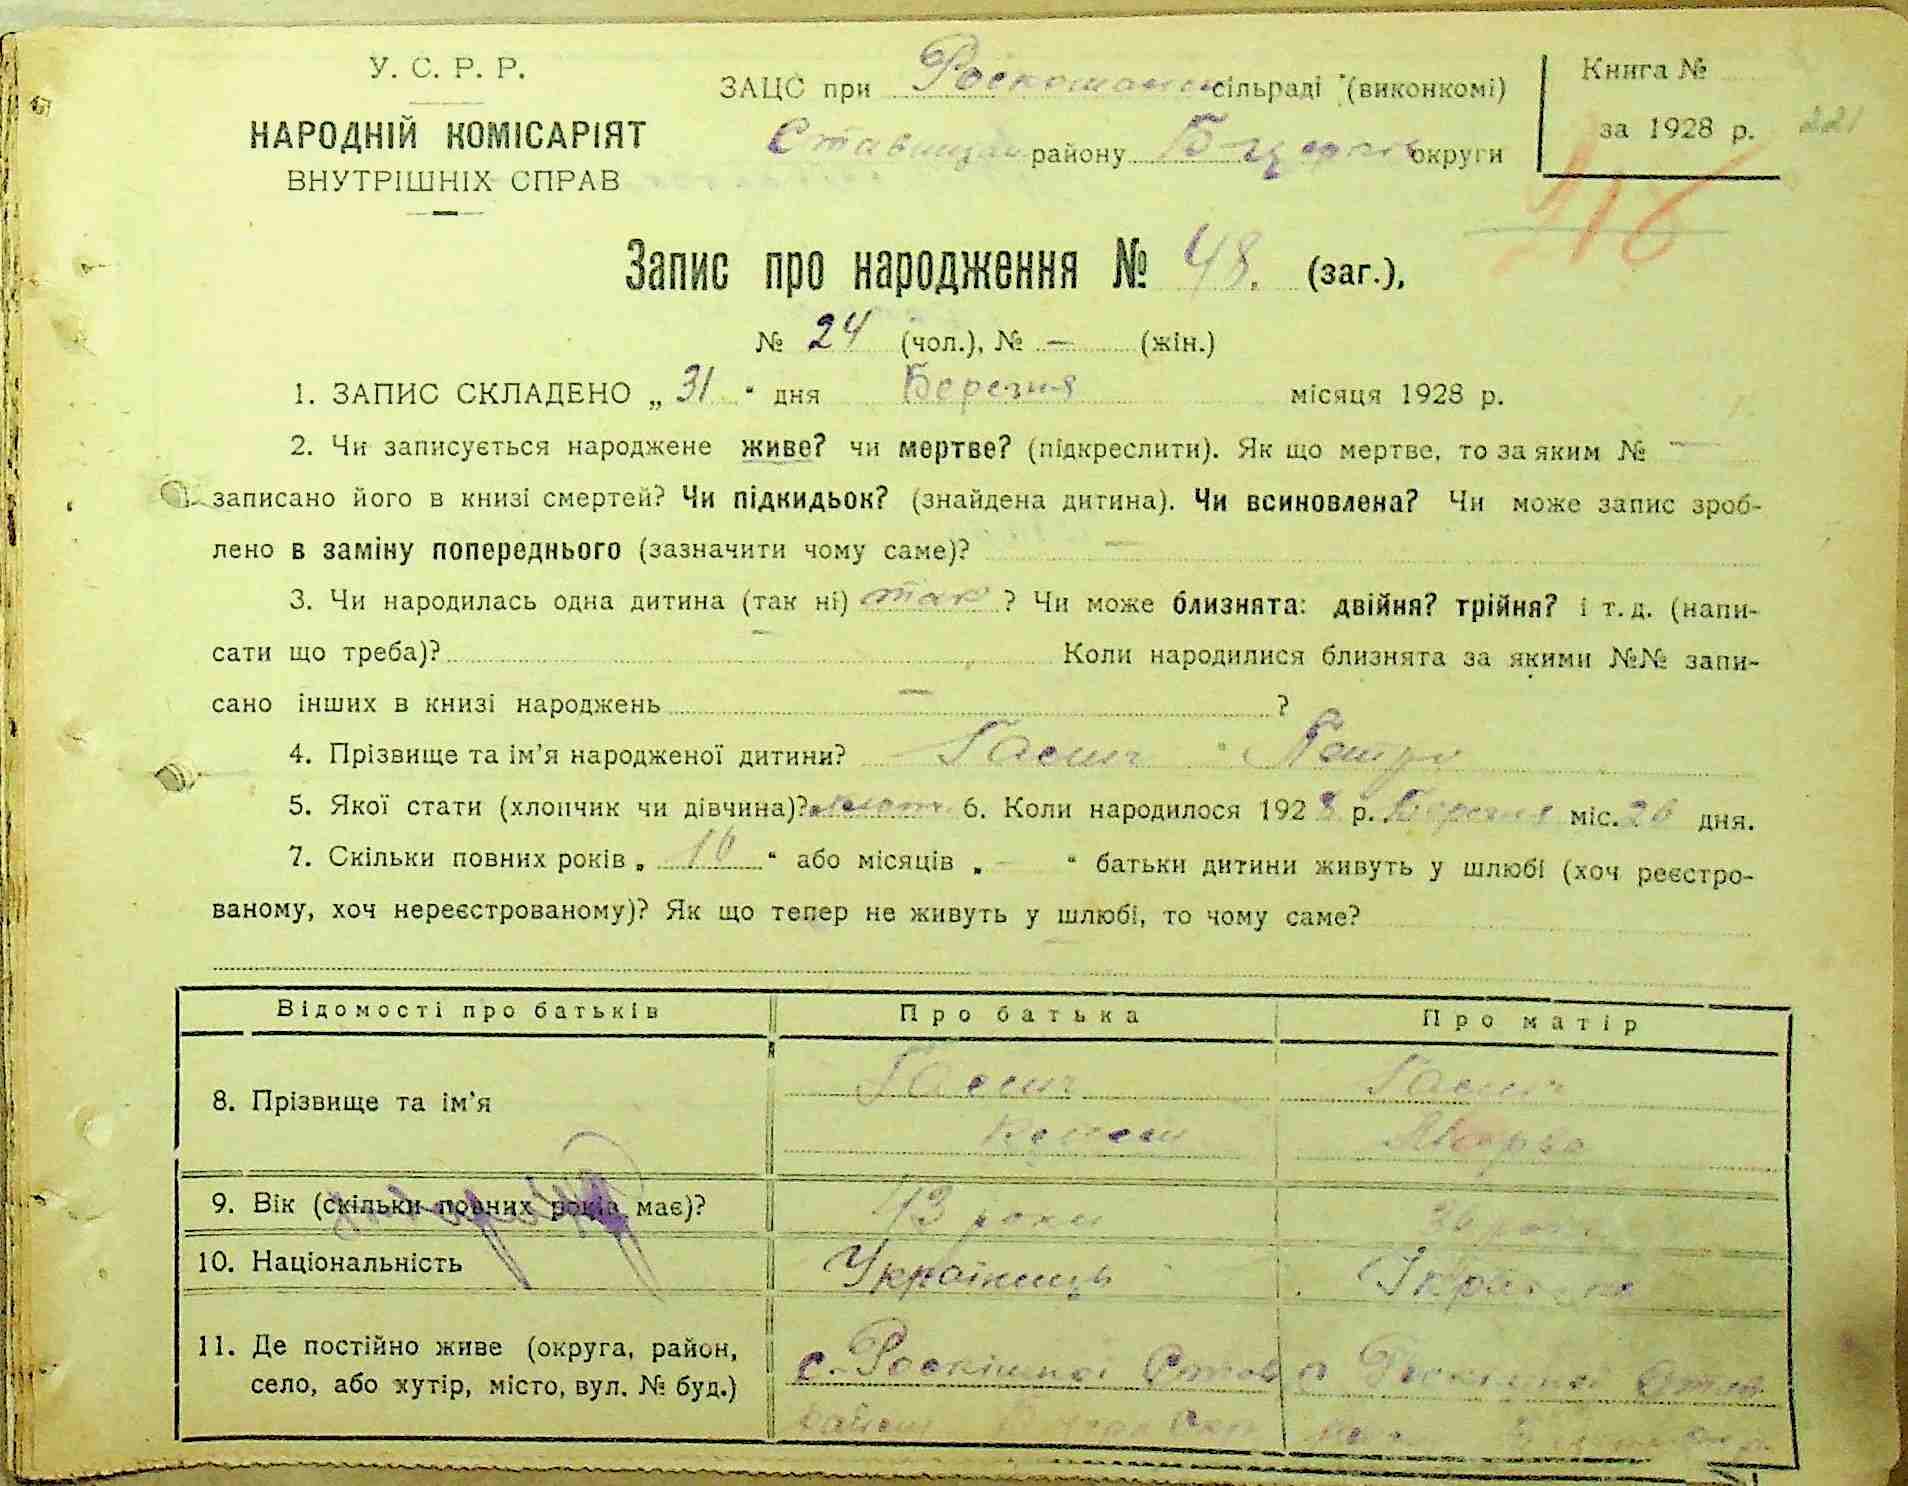 У. С. Р. Р.
НАРОДНІЙ КОМІСАРІЯТ
ВНУТРІШНІХ СПРАВ
ЗАЦС при Роскошанск сільраді (виконкомі)
Ставищан району Б-церків округи
Книга №
за 1928 р.
221
216
Запис про народження № 48. (заг.),
№ 24 (чол.), № — (жін.)
1. ЗАПИС СКЛАДЕНО „ 31 “ дня Березня місяця 1928 р.
2. Чи записується народжене живе? чи мертве? (підкреслити). Як що мертве, то за яким № —
записано його в книзі смертей? Чи підкидьок? (знайдена дитина). Чи всиновлена? Чи може запис зроб-
лено в заміну попереднього (зазначити чому саме)? —
3. Чи народилась одна дитина (так ні) так ? Чи може близнята: двійня? трійня? і т. д. (напи-
сати що треба)? — Коли народилися близнята за якими №№ запи-
сано інших в книзі народжень — ?
4. Прізвище та ім’я народженої дитини? Гасич Петро
5. Якої стати (хлопчик чи дівчина)? 6. Коли народилося 1928 р. Березня міс. 26 дня.
7. Скільки повних років „ 16 “ або місяців „ — “ батьки дитини живуть у шлюбі (хоч реєстро-
ваному, хоч нереєстрованому)? Як що тепер не живуть у шлюбі, то чому саме?
Відомості про батьків Про батька Про матір
8. Прізвище та ім’я Гасич Гасич
9. Вік (скільки повних років має)? 43 роки 36 років
10. Національність Українець Українка
11. Де постійно живе (округа, район,
село, або хутір, місто, вул. № буд.)
с. Роскішної Став с Роскішної Став
району